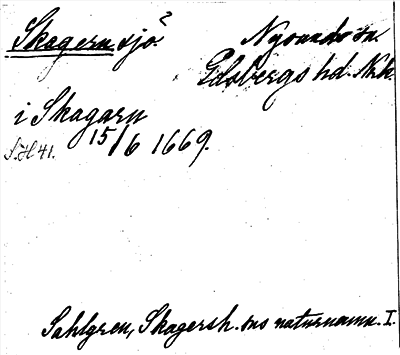 Skagern sjö.²
Nysunds sn.
Edsbergs hd. Nrk.
i Skagarn
15/6 1669.
S.H 41.
Sahlgren, Skagersh. sns naturnamn. I.